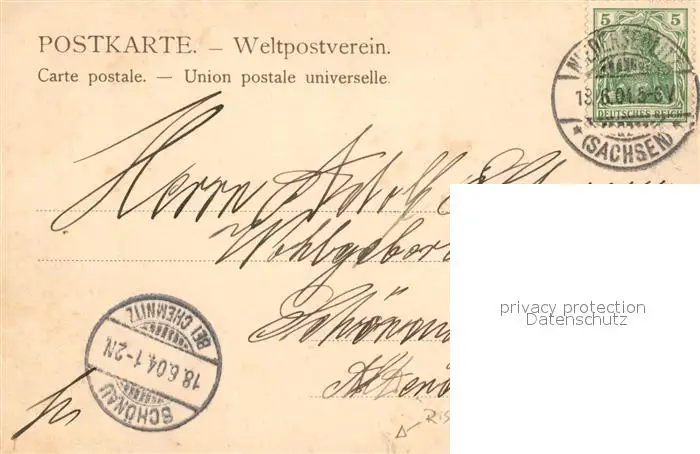 POSTKARTE. – Weltpostverein.
Carte postale. — Union postale universelle.
5 5
DEUTSCHES REICH
13.6.04.5-6V.
(SACHSEN)
Herrn Adolf
Wohlgebor
Schönau
in
BEI CHEMNITZ
18.6.04.1-2N.
SCHÖNAU
privacy protection
Datenschutz